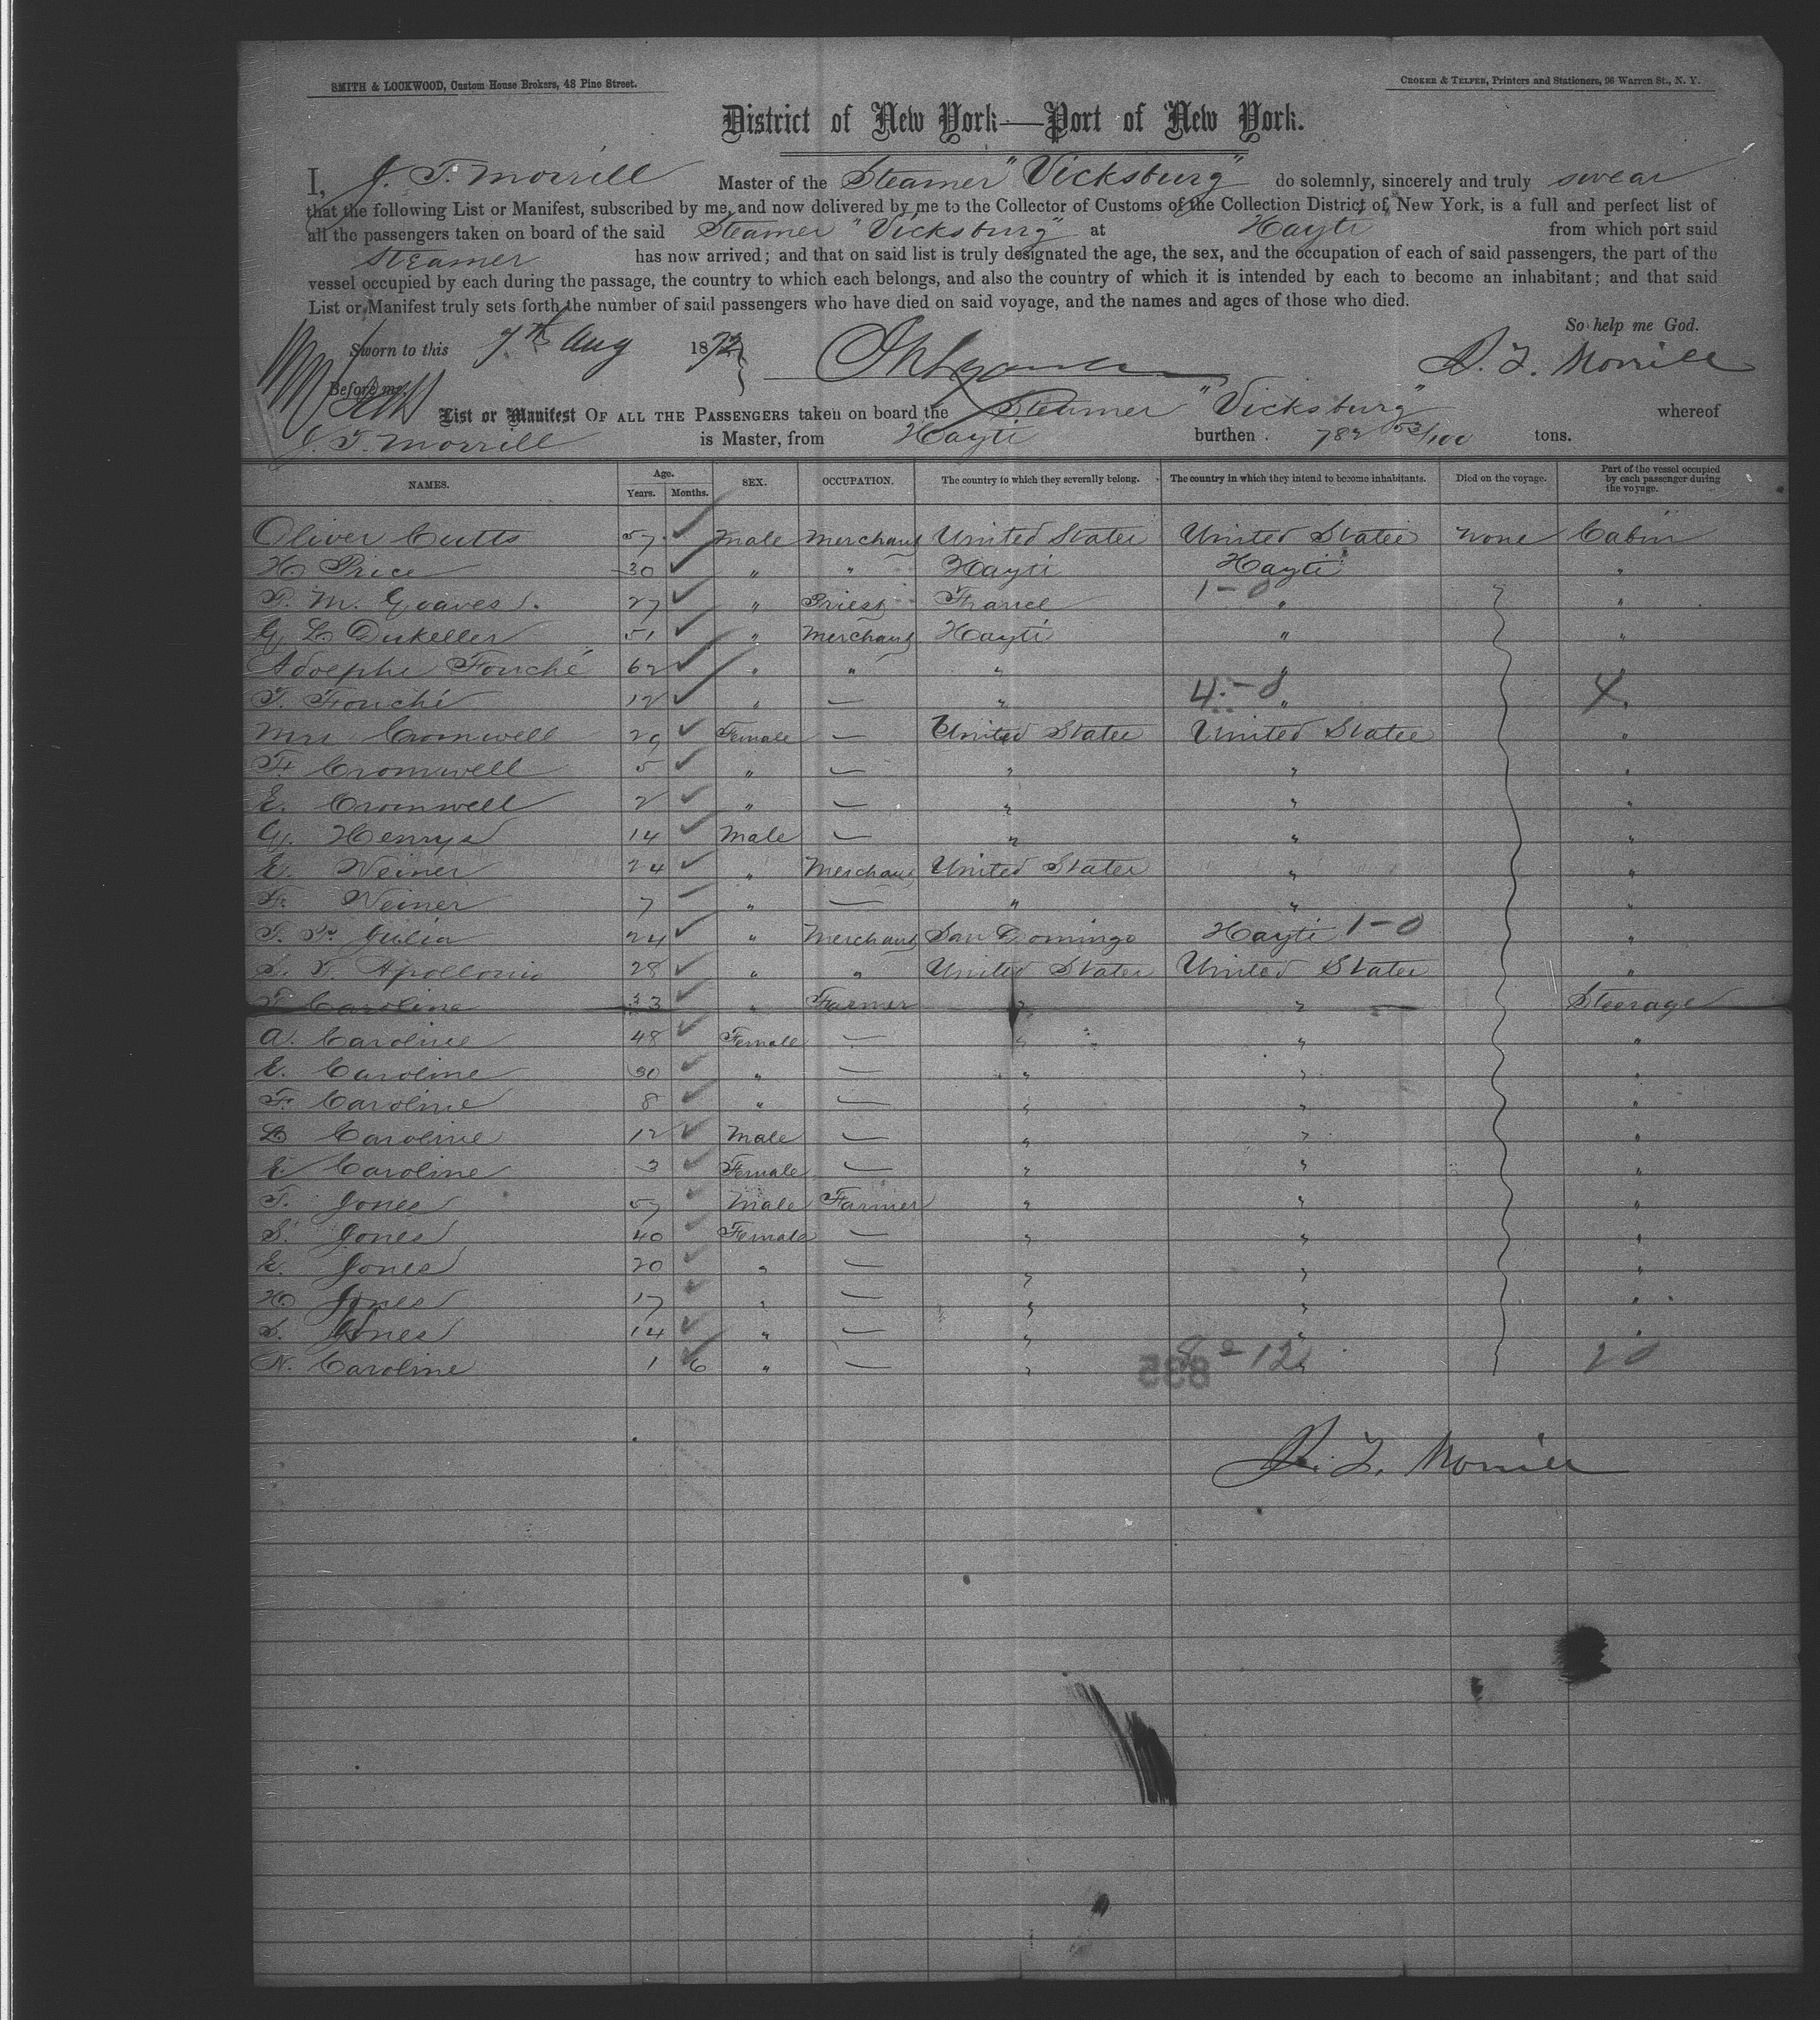 SMITH & LOCKWOOD, Custom House Brokers, 48 Pine Street.
CROKER & TELFER, Printers and Stationers, 96 Warren St., N. Y.
District of New York—Port of New York.
I, J. T. Morrill Master of the Steamer "Vicksburg" do solemnly, sincerely and truly swear
that the following List or Manifest, subscribed by me, and now delivered by me to the Collector of Customs of the Collection District of New York, is a full and perfect list of
all the passengers taken on board of the said Steamer "Vicksburg" at Hayti from which port said
Steamer has now arrived; and that on said list is truly designated the age, the sex, and the occupation of each of said passengers, the part of the
vessel occupied by each during the passage, the country to which each belongs, and also the country of which it is intended by each to become an inhabitant; and that said
List or Manifest truly sets forth the number of said passengers who have died on said voyage, and the names and ages of those who died.
So help me God.
Sworn to this 7th Aug 1872
Before me,
List or Manifest OF ALL THE PASSENGERS taken on board the Steamer "Vicksburg" whereof
J. T. Morrill is Master, from Hayti burthen 782 53/100 tons.
NAMES. Age. Years. Months. SEX. OCCUPATION. The country to which they severally belong. The country in which they intend to become inhabitants. Died on the voyage. Part of the vessel occupied by each passenger during the voyage.
Oliver Cutts 57 Male Merchant United States United States None Cabin
H. Price 30 " " Hayti Hayti "
P. M. Goaves 27 " Priest France 1-0 " "
G. L. Dukeller 51 " Merchant Hayti " "
Adolphe Fouché 62 " " " " "
T. Fouché 12 " — " 4-0 " 4 "
Mrs Cromwell 29 Female — United States United States "
F. Cromwell 5 " — " " "
E. Cromwell 2 " — " " "
G. Henrys 14 Male — " " "
E. Weiner 24 " Merchant United States " "
F. Weiner 7 " — " " "
T. P. Julia 24 " Merchant San Domingo Hayti 1-0 "
T. Apollonio 28 " " United States United States "
T. Caroline 53 " Farmer " " Steerage
A. Caroline 48 Female — " " "
E. Caroline 30 " — " " "
F. Caroline 8 " — " " "
L. Caroline 12 Male — " " "
E. Caroline 3 Female — " " "
T. Jones 57 Male Farmer " " "
S. Jones 40 Female — " " "
E. Jones 20 " — " " "
H. Jones 17 " — " " "
S. Jones 14 " — " " "
N. Caroline 1 6 " — " 8-12 " 20